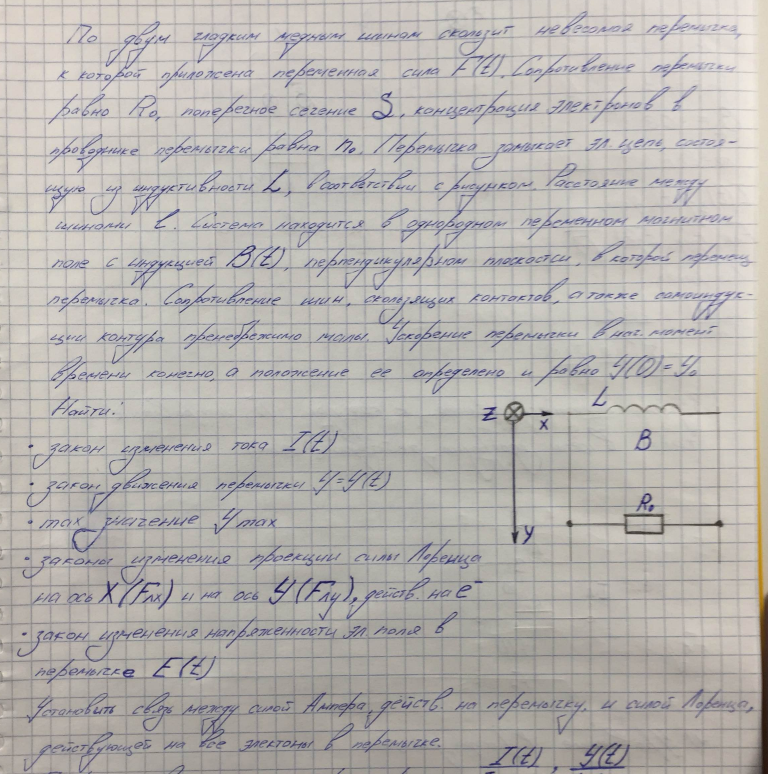 По двум гладким медным шинам скользит невесомая перемычка,
к которой приложена переменная сила F(t). Сопротивление перемычки
равно R₀, поперечное сечение S, концентрация электронов в
проводнике перемычки равна n₀. Перемычка замыкает эл. цепь, состоя-
щую из индуктивности L, в соответствии с рисунком. Расстояние между
шинами l. Система находится в однородном переменном магнитном
поле с индукцией B(t), перпендикулярном плоскости, в которой перемещ
перемычка. Сопротивление шин, скользящих контактов, а также самоиндук-
ции контура пренебрежимо малы. Ускорение перемычки в нач. момент
времени конечно, а положение ее определено и равно y(0)=y₀
Найти:
L
Z X
· закон изменения тока I(t)
B
· закон движения перемычки y=y(t)
· max значение y max
R₀
Y
· законы изменения проекции силы Лоренца
на ось X (Fлx) и на ось Y (Fлy), действ. на e⁻
· закон изменения напряженности эл. поля в
перемычке E(t)
Установить связь между силой Ампера, действ. на перемычку, и силой Лоренца,
действующей на все электоны в перемычке.
I(t), y(t)